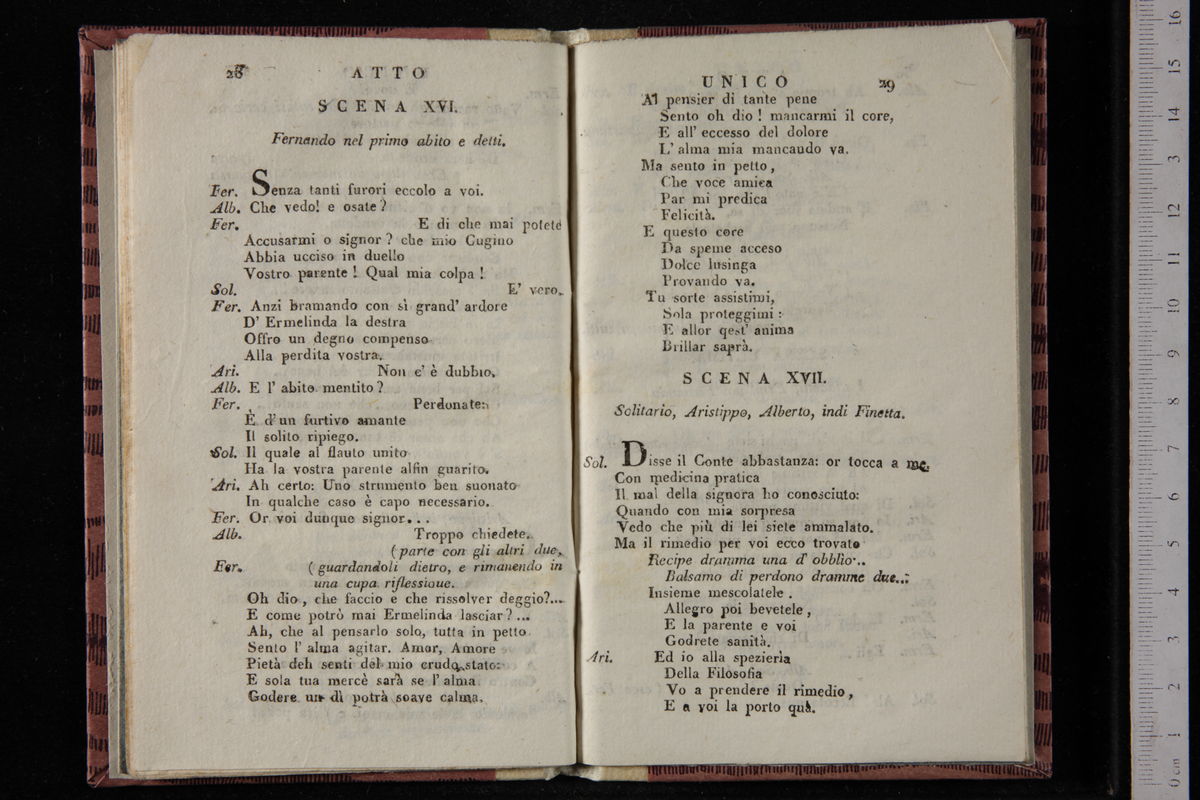 28 ATTO
SCENA XVI.
Fernando nel primo abito e detti.
Fer. Senza tanti furori eccolo a voi.
Alb. Che vedo! e osate?
Fer. E di che mai potete
Accusarmi o signor? che mio Cugino
Abbia ucciso in duello
Vostro parente! Qual mia colpa!
Sol. E' vero.
Fer. Anzi bramando con sì grand' ardore
D' Ermelinda la destra
Offro un degno compenso
Alla perdita vostra.
Ari. Non c' è dubbio.
Alb. E l' abito mentito?
Fer. Perdonate:
È d' un furtivo amante
Il solito ripiego.
Sol. Il quale al flauto unito
Ha la vostra parente alfin guarito.
Ari. Ah certo: Uno strumento ben suonato
In qualche caso è capo necessario.
Fer. Or voi dunque signor...
Alb. Troppo chiedete.
(parte con gli altri due.
Fer. (guardandoli dietro, e rimanendo in
una cupa riflessioue.
Oh dio, che faccio e che rissolver deggio?...
E come potrò mai Ermelinda lasciar?...
Ah, che al pensarlo solo, tutta in petto
Sento l' alma agitar. Amor, Amore
Pietà deh senti del mio crudo stato:
E sola tua mercè sarà se l' alma
Godere un dì potrà soave calma.
UNICO 29
Al pensier di tante pene
Sento oh dio! mancarmi il core,
E all' eccesso del dolore
L' alma mia mancando va.
Ma sento in petto,
Che voce amica
Par mi predica
Felicità.
E questo core
Da speme acceso
Dolce lusinga
Provando va.
Tu sorte assistimi,
Sola proteggimi:
E allor qest' anima
Brillar saprà.
SCENA XVII.
Solitario, Aristippo, Alberto, indi Finetta.
Sol. Disse il Conte abbastanza: or tocca a me.
Con medicina pratica
Il mal della signora ho conosciuto:
Quando con mia sorpresa
Vedo che più di lei siete ammalato.
Ma il rimedio per voi ecco trovato
Recipe dramma una d' obblio..
Balsamo di perdono dramme due..:
Insieme mescolatele.
Allegro poi bevetele,
E la parente e voi
Godrete sanità.
Ari. Ed io alla spezieria
Della Filosofia
Vo a prendere il rimedio,
E a voi la porto quà.
0 cm 1 2 3 4 5 6 7 8 9 10 11 12 13 14 15 16